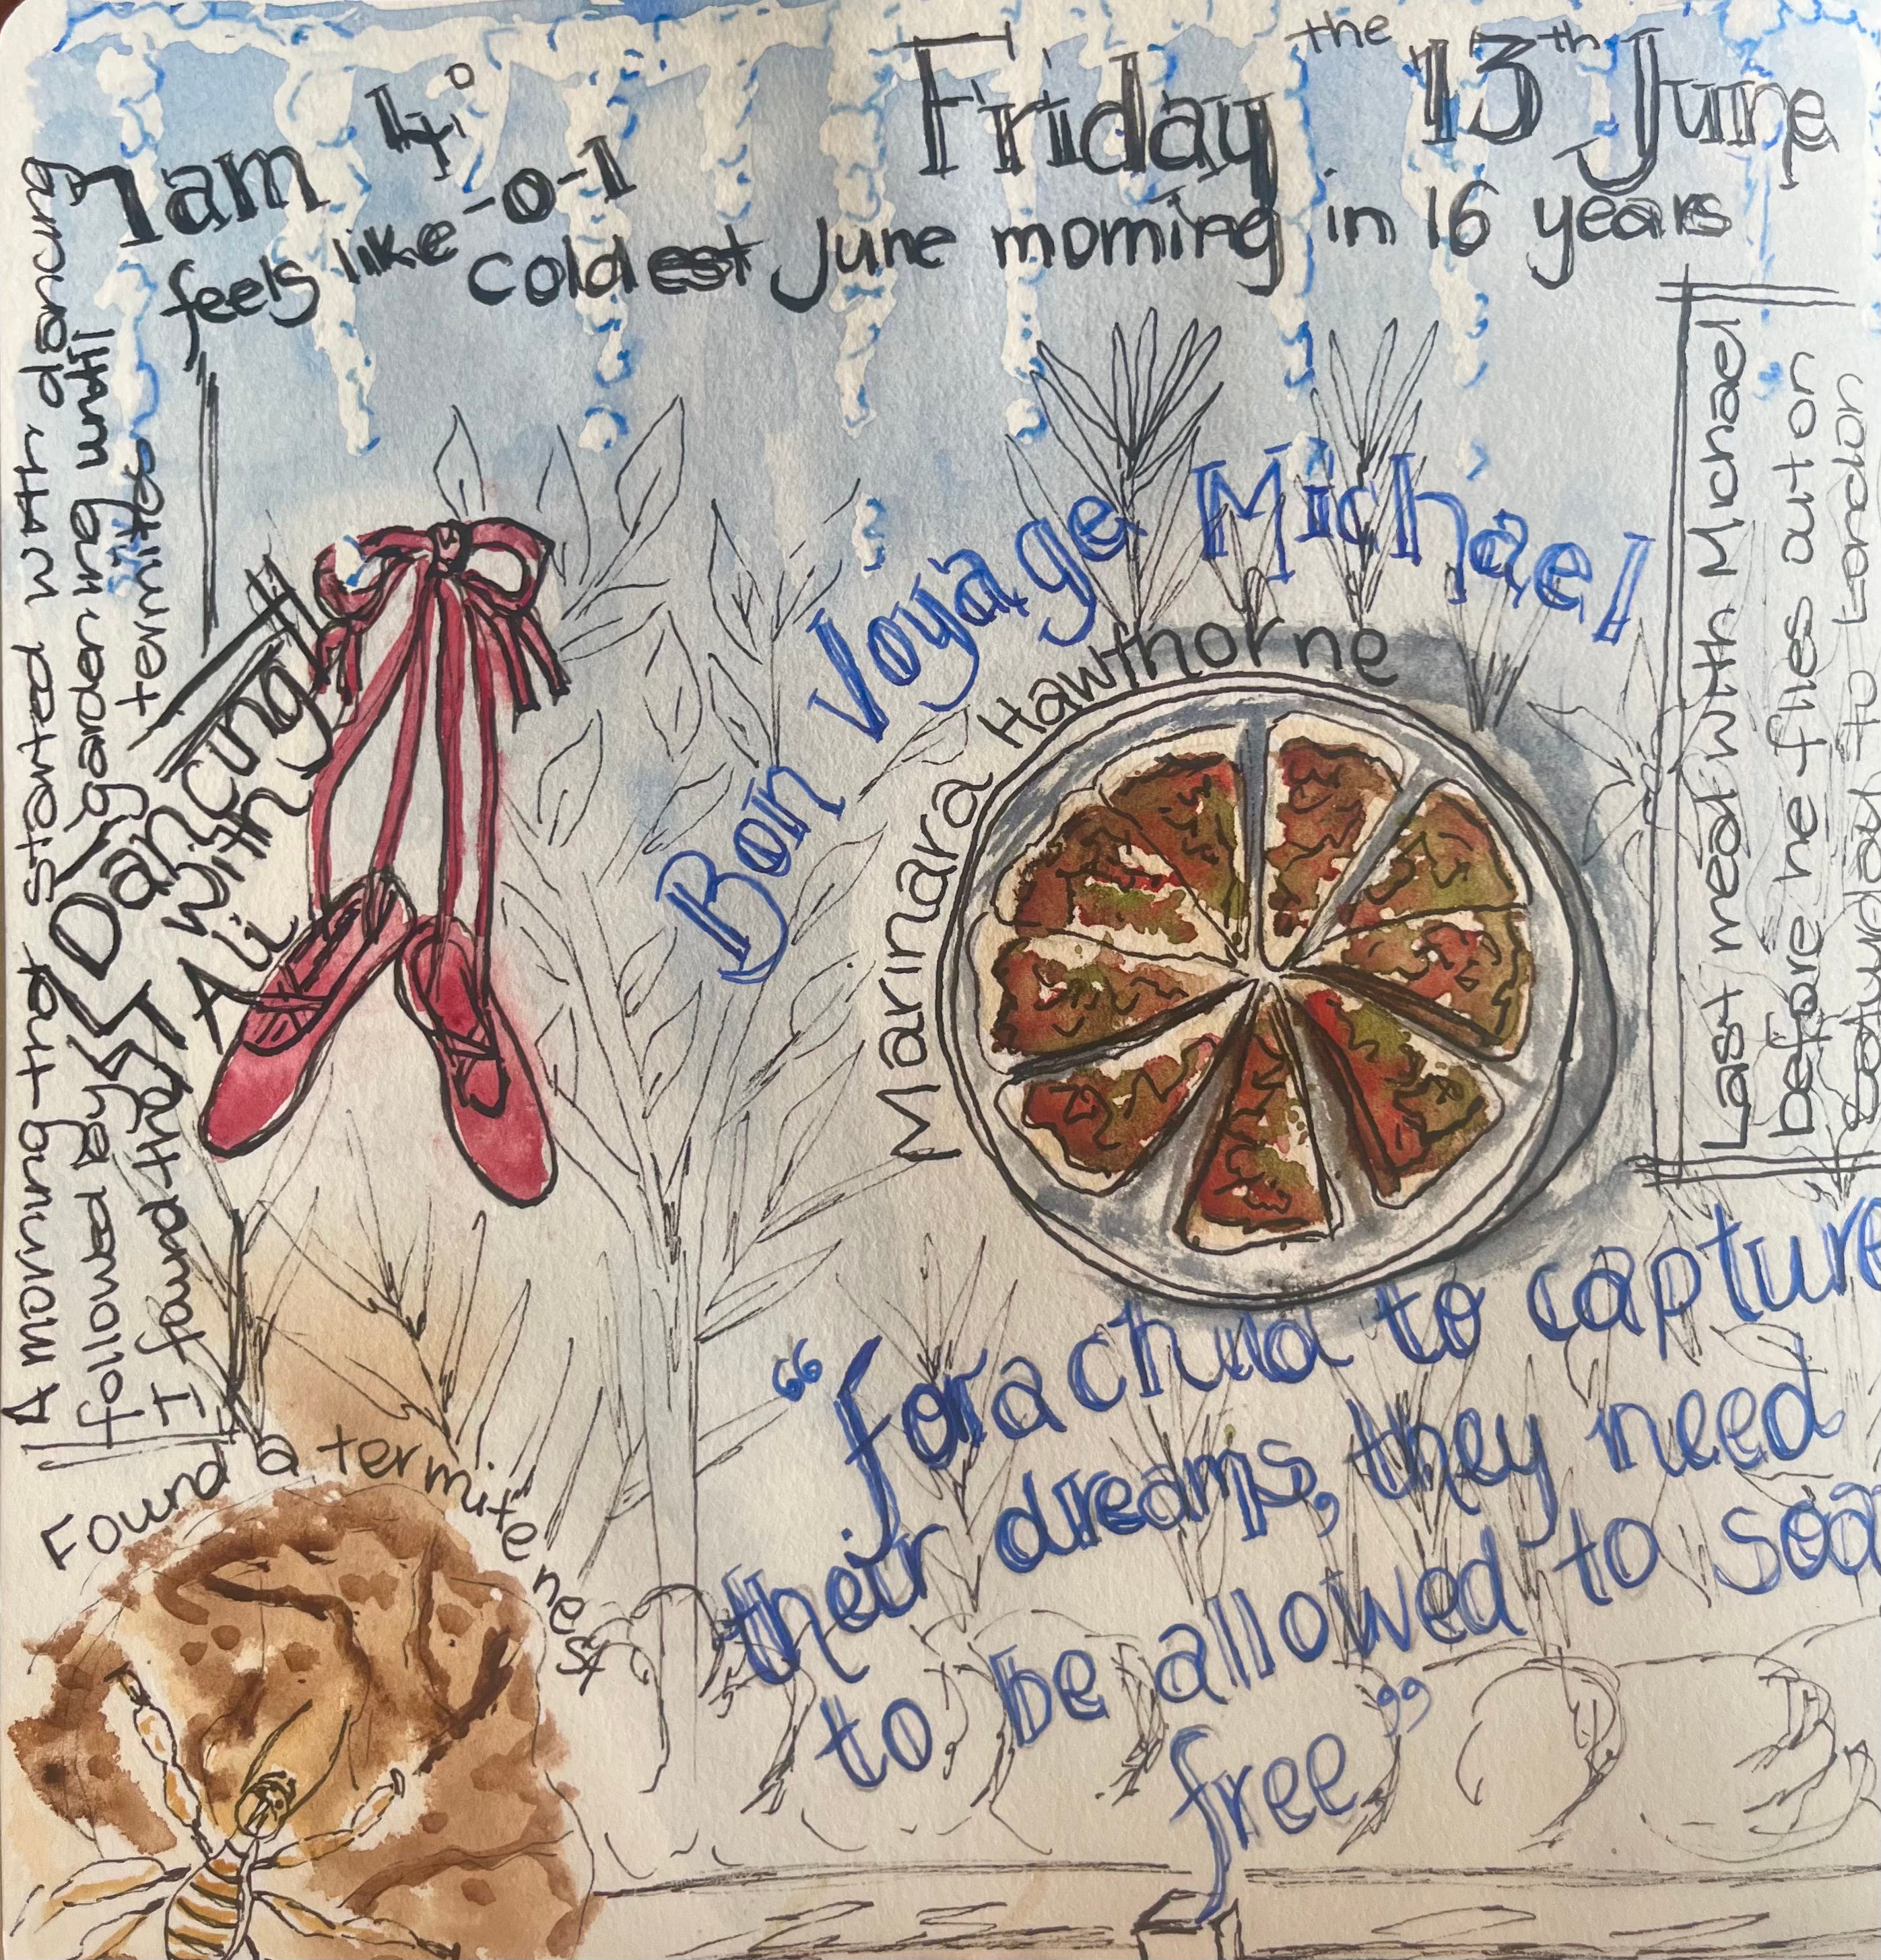 Friday the 13th June
7am 4°
feels like -0-1
coldest June morning in 16 years
A morning that started with dancing
followed by gardening until
I found the termites
Dancing
with
Ali
Bon Voyage Michael
Marinara Hawthorne
Last meal with Michael
before he flies out on
Saturday to London
"For a child to capture
their dreams, they need
to be allowed to soa
free"
Found a termite nest